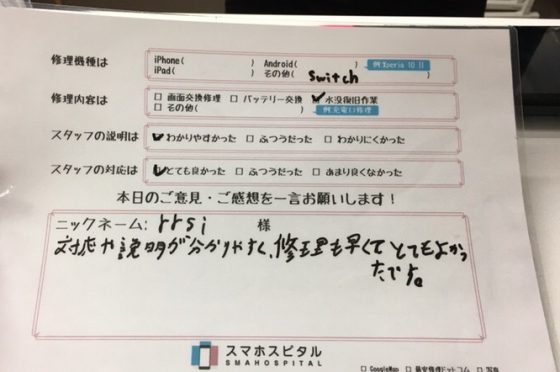 修理機種は
iPhone( ) Android( ) 例:Xperia 10 II
iPad( ) その他( switch )
修理内容は
□ 画面交換修理 □ バッテリー交換 ☑ 水没復旧作業
□ その他( ) 例:充電口修理
スタッフの説明は ☑ わかりやすかった □ ふつうだった □ わかりにくかった
スタッフの対応は ☑ とても良かった □ ふつうだった □ あまり良くなかった
本日のご意見・ご感想を一言お願いします！
ニックネーム: rrsi 様
対応や説明が分かりやすく、修理も早くてとてもよかっ
たです。
スマホスピタル
SMAHOSPITAL
□ GoogleMap □ 最安修理ドットコム □ 写真